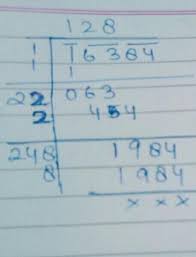 128
1 16384
1 1
22 063
2 454
248 1984
8 1984
x x x